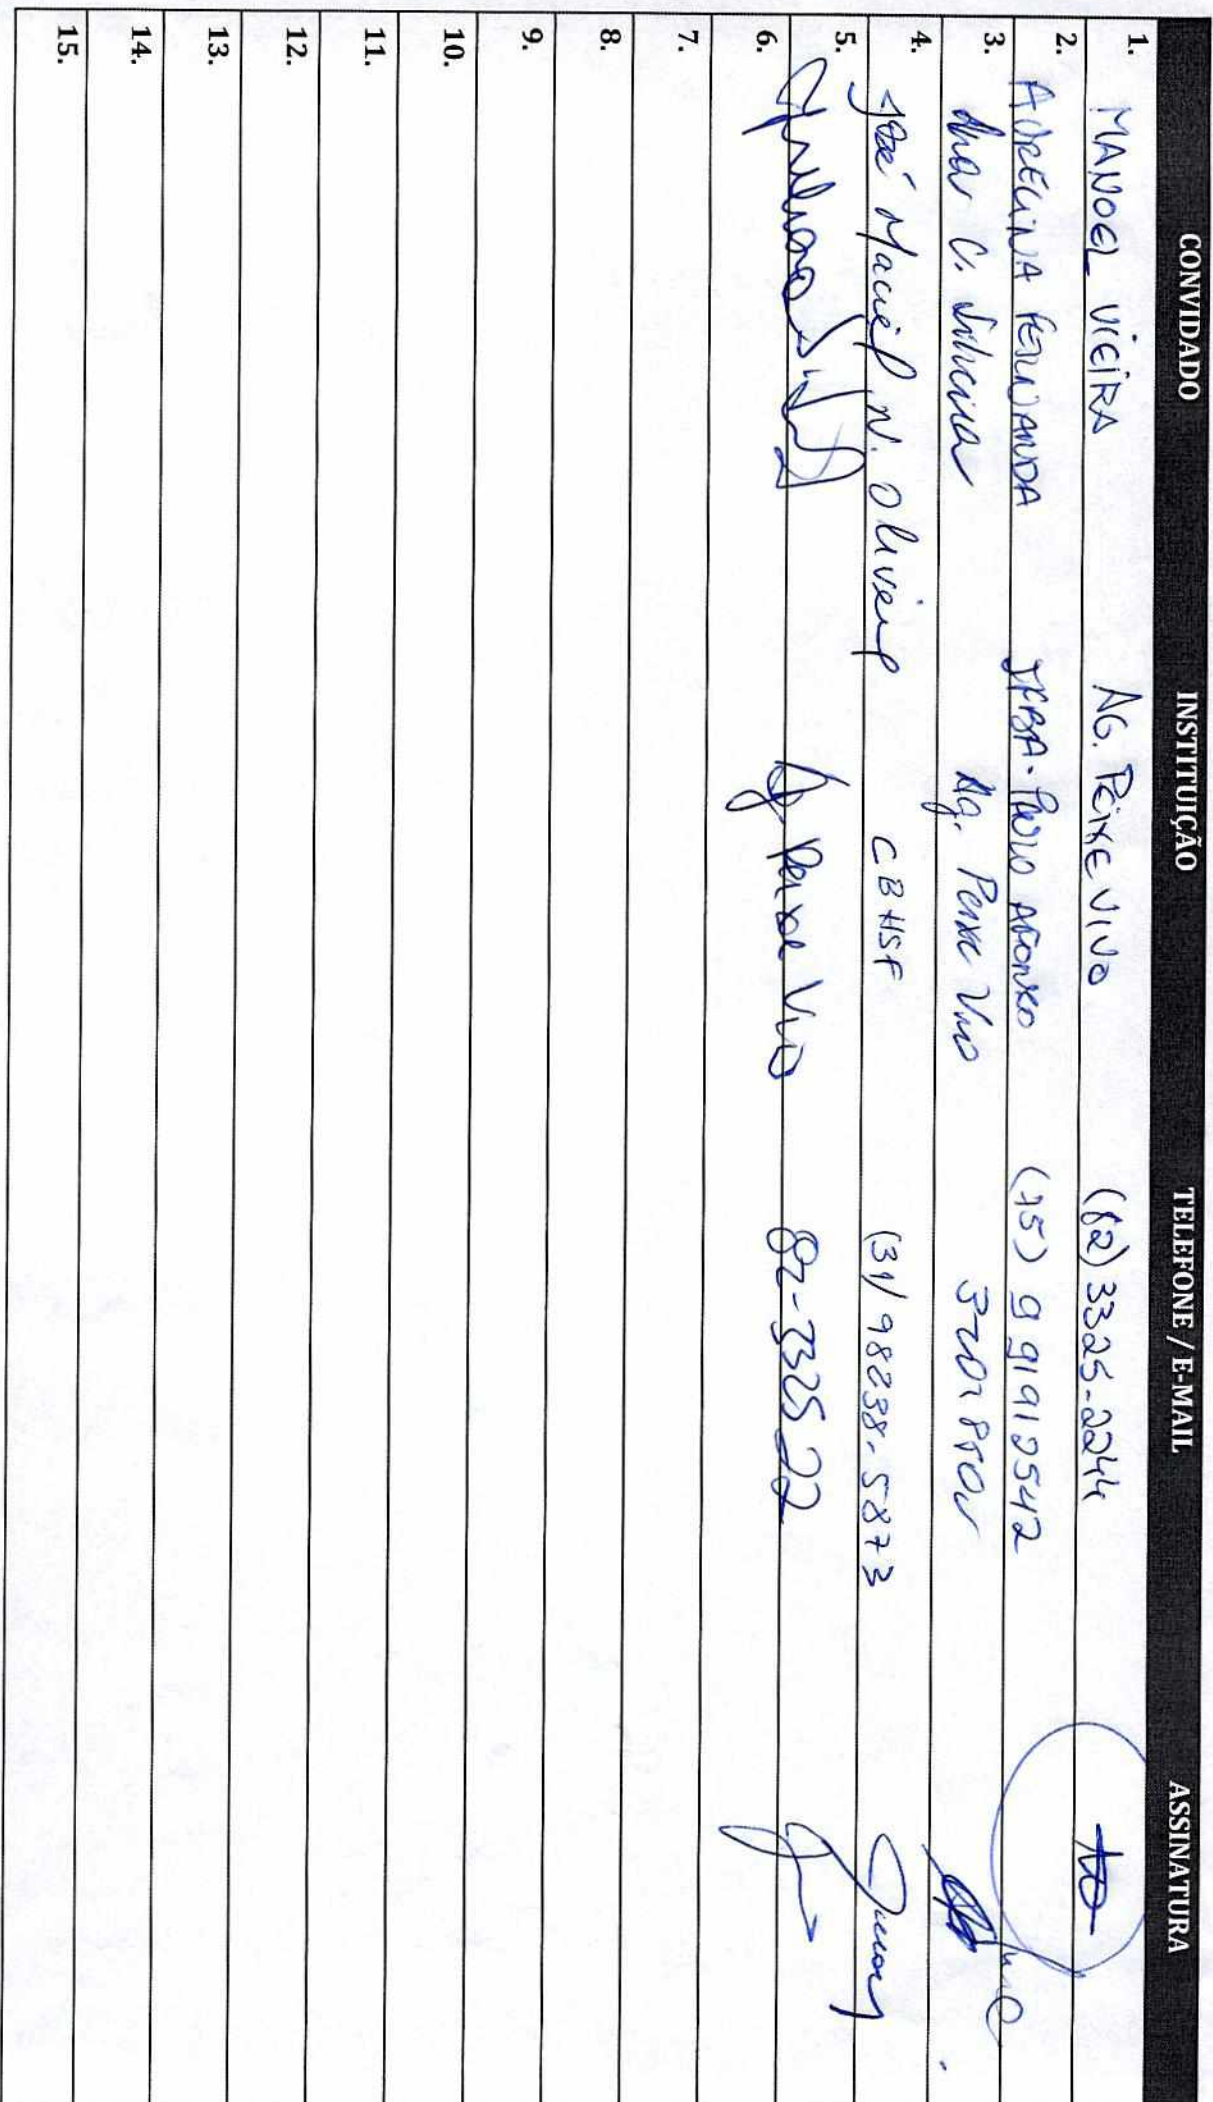 CONVIDADO INSTITUIÇÃO TELEFONE / E-MAIL ASSINATURA
1. MANOEL VIEIRA AG. PEIXE VIVO (82) 3325-2244
2. AURELINA FERNANDA PAULO AFONSO
3. C. Silveira Ag. Peixe Vivo
4. José Maciel N. Oliveira CBHSF (31) 98238-5873
5. Ag. Peixe Vivo 82-3325 22
6.
7.
8.
9.
10.
11.
12.
13.
14.
15.